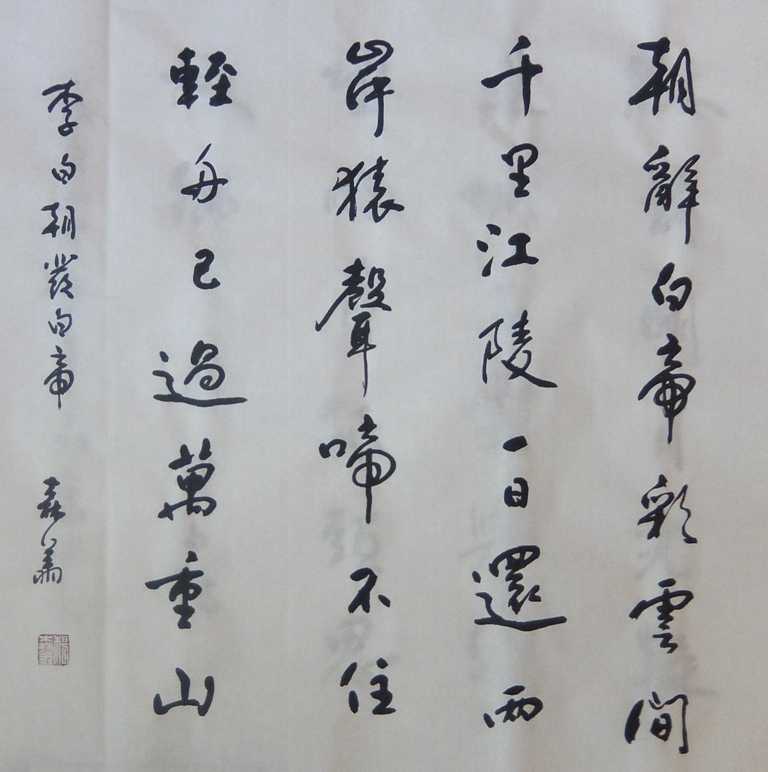 朝辭白帝彩雲間
千里江陵一日還兩
岸猿聲啼不住
輕舟已過萬重山
李白朝發白帝